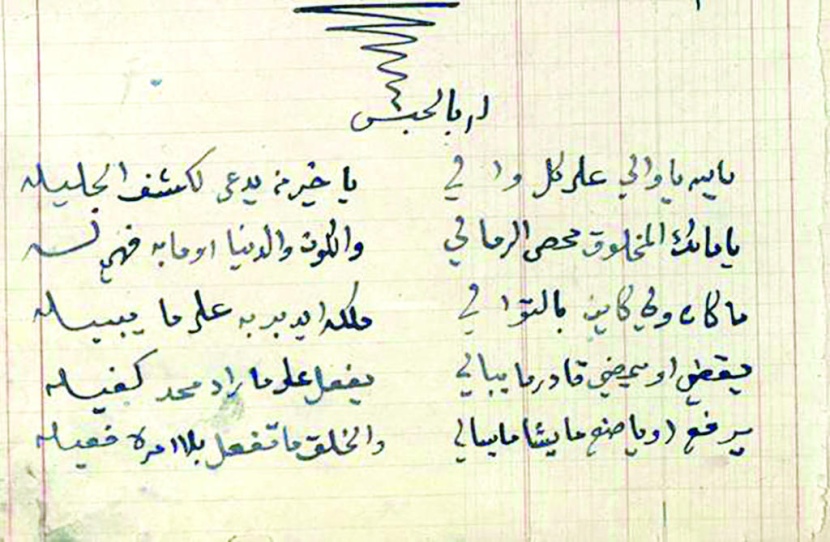 يا الله يا والي على كل والي يا خير من يدعى لكشف الجليله
يا مالك المخلوق محصي الرمالي والكون والدنيا او ما به فهي له
ما كان ولي كاين بالتوالي ملكه ايدبر به على ما يبيله
يقضي او يمضي قادر ما يبالي يفعل على ما راد محد كفيله
يرفع او يا ضع ما يشا ما يبالي والخلق ما تفعل بلا امره فعيله